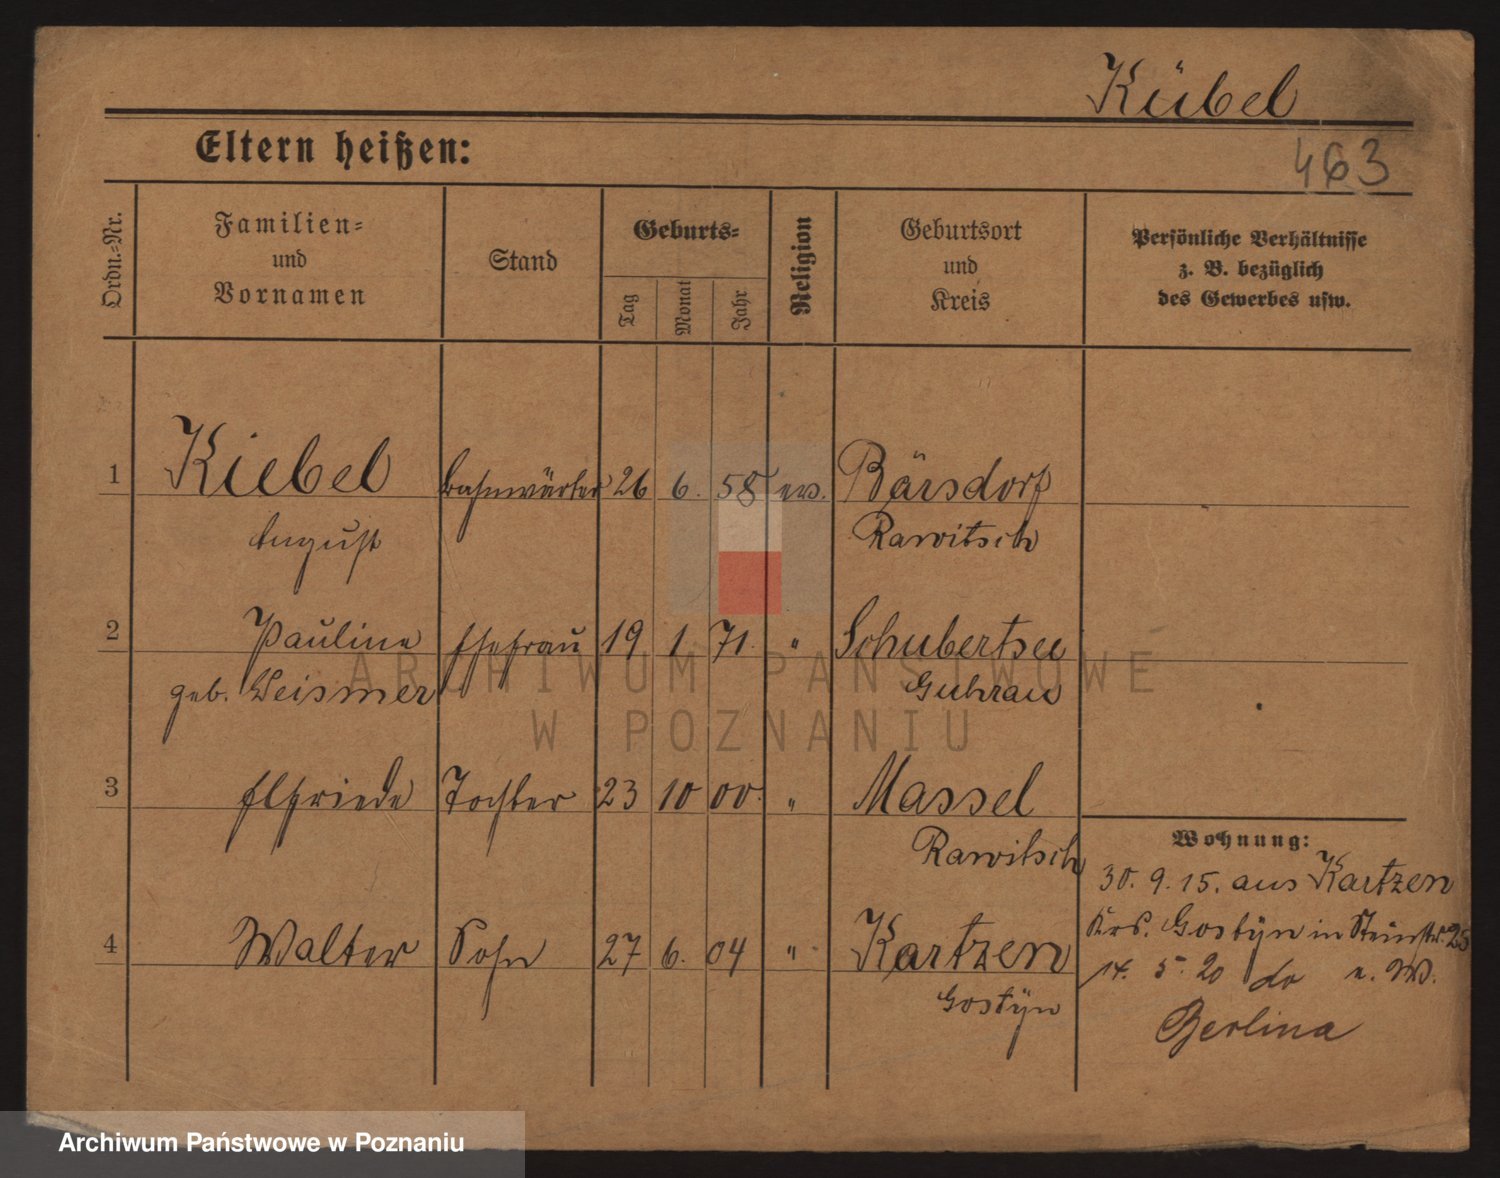 Kübel
Eltern heißen:
463
Ordn.=Nr.
Familien=
und
Vornamen
Stand
Geburts=
Tag
Monat
Jahr
Religion
Geburtsort
und
Kreis
Persönliche Verhältnisse
z. B. bezüglich
des Gewerbes usw.
1 Kiebel Bahnwärter 26 6. 58 ev. Bärsdorf
August Rawitsch
2 Pauline Ehefrau 19 1. 71. " Schubertsee
geb. Weismer Guhrau
3 Elfriede Tochter 23 10 00. " Massel
Rawitsch
Wohnung:
30. 9. 15. aus Kartzen
Krs. Gostyn in Steinstr. 25
4 Walter Sohn 27 6. 04 " Kartzen
Gostÿn
14. 5. 20 do n. W.
Berlina
ARCHIWUM PAŃSTWOWE
W POZNANIU
Archiwum Państwowe w Poznaniu